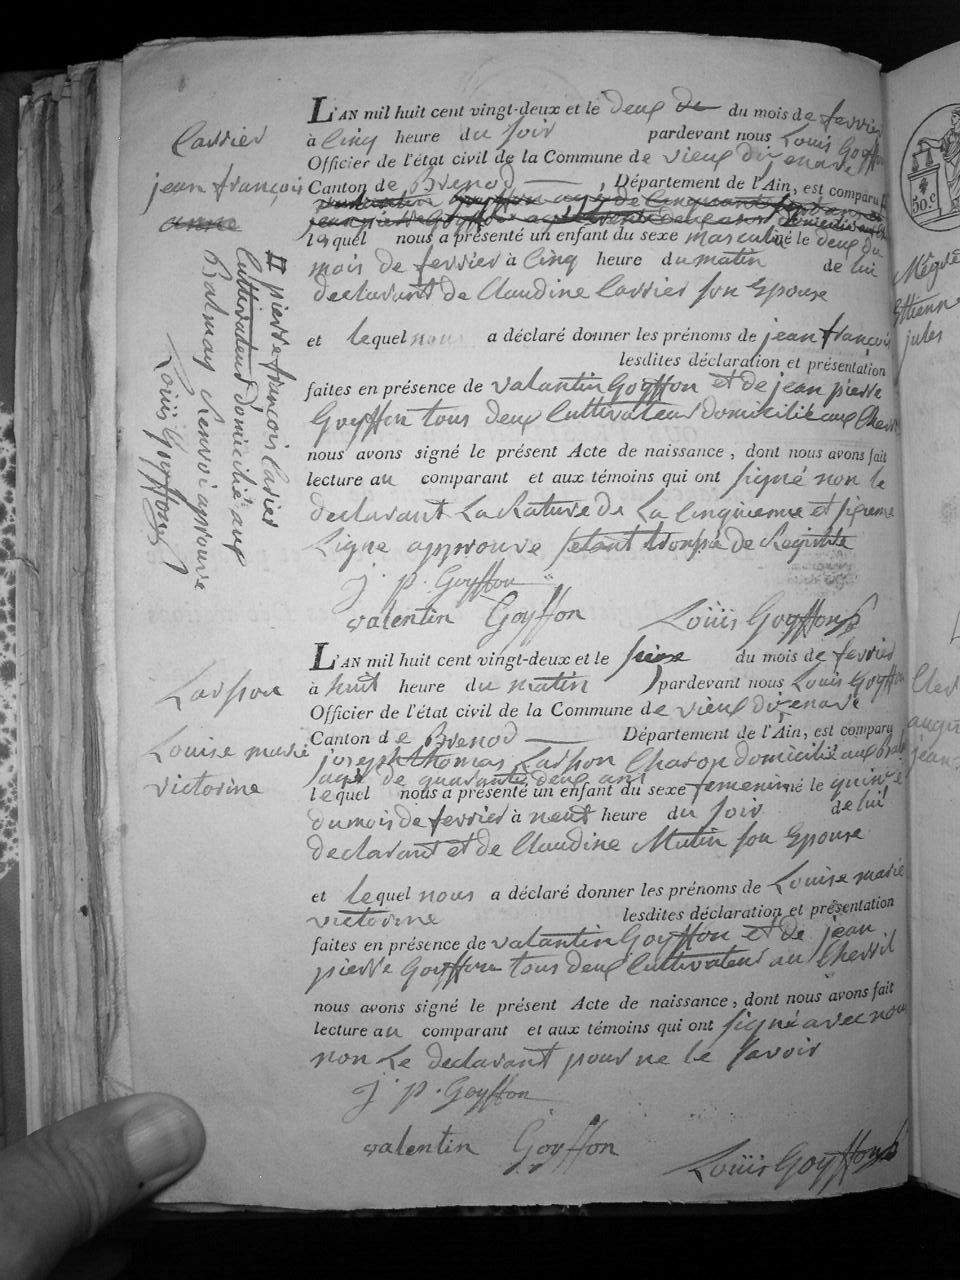 Carrier
jean françois
anne
L'AN mil huit cent vingt-deux et le deux de du mois de fevrier
à Cinq heure du soir pardevant nous Louis Goyffon
Officier de l'état civil de la Commune de vieux dizenave
Canton de Brenod , Département de l'Ain, est comparu
lequel nous a présenté un enfant du sexe masculin né le deux du
mois de fevrier à Cinq heure du matin de lui
declarant de Claudine Carrier son Epouse
et lequel nous a déclaré donner les prénoms de jean françois
lesdites déclaration et présentation
faites en présence de valantin Goyffon et de jean pierre
Goyffon tous deux Cultivateur domicilié aux Chevril
nous avons signé le présent Acte de naissance, dont nous avons fait
lecture au comparant et aux témoins qui ont signé non le
declarant La Rature de La Cinquieme et sixieme
Ligne approuve setant trompé de Registre
J. P. Goyffon
valentin Goyffon Louis Goyffon
pierre françois Carrier
Cultivateur domicilié aux
Balmay Renvoi approuve
Louis Goyffon
Larson
Louise marie
victorine
L'AN mil huit cent vingt-deux et le seize du mois de fevrier
à huit heure du matin pardevant nous Louis Goyffon
Officier de l'état civil de la Commune de vieux dizenave
Canton de Brenod Département de l'Ain, est comparu
joseph thomas Larson Charon domicilié aux
agé de quarante deux ans
lequel nous a présenté un enfant du sexe femenin né le quinze
du mois de fevrier à neuf heure du soir de lui
declarant et de Claudine Mutin son Epouse
et lequel nous a déclaré donner les prénoms de Louise marie
victorine lesdites déclaration et présentation
faites en présence de valantin Goyffon et de jean
pierre Goyffon tous deux Cultivateur au Chevril
nous avons signé le présent Acte de naissance, dont nous avons fait
lecture au comparant et aux témoins qui ont signé avec nou
non Le declarant pour ne le savoir
J. P. Goyffon
valentin Goyffon
Louis Goyffon
50 c
Ettienne
jules